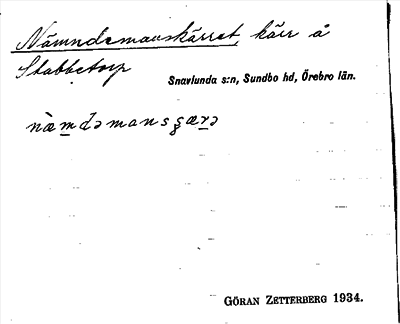 Nämndemanskärret, kärr å
Stabbetorp
Snavlunda s:n, Sundbo hd, Örebro län.
næ̀m̲də mansʂærə
GÖRAN ZETTERBERG 1934.